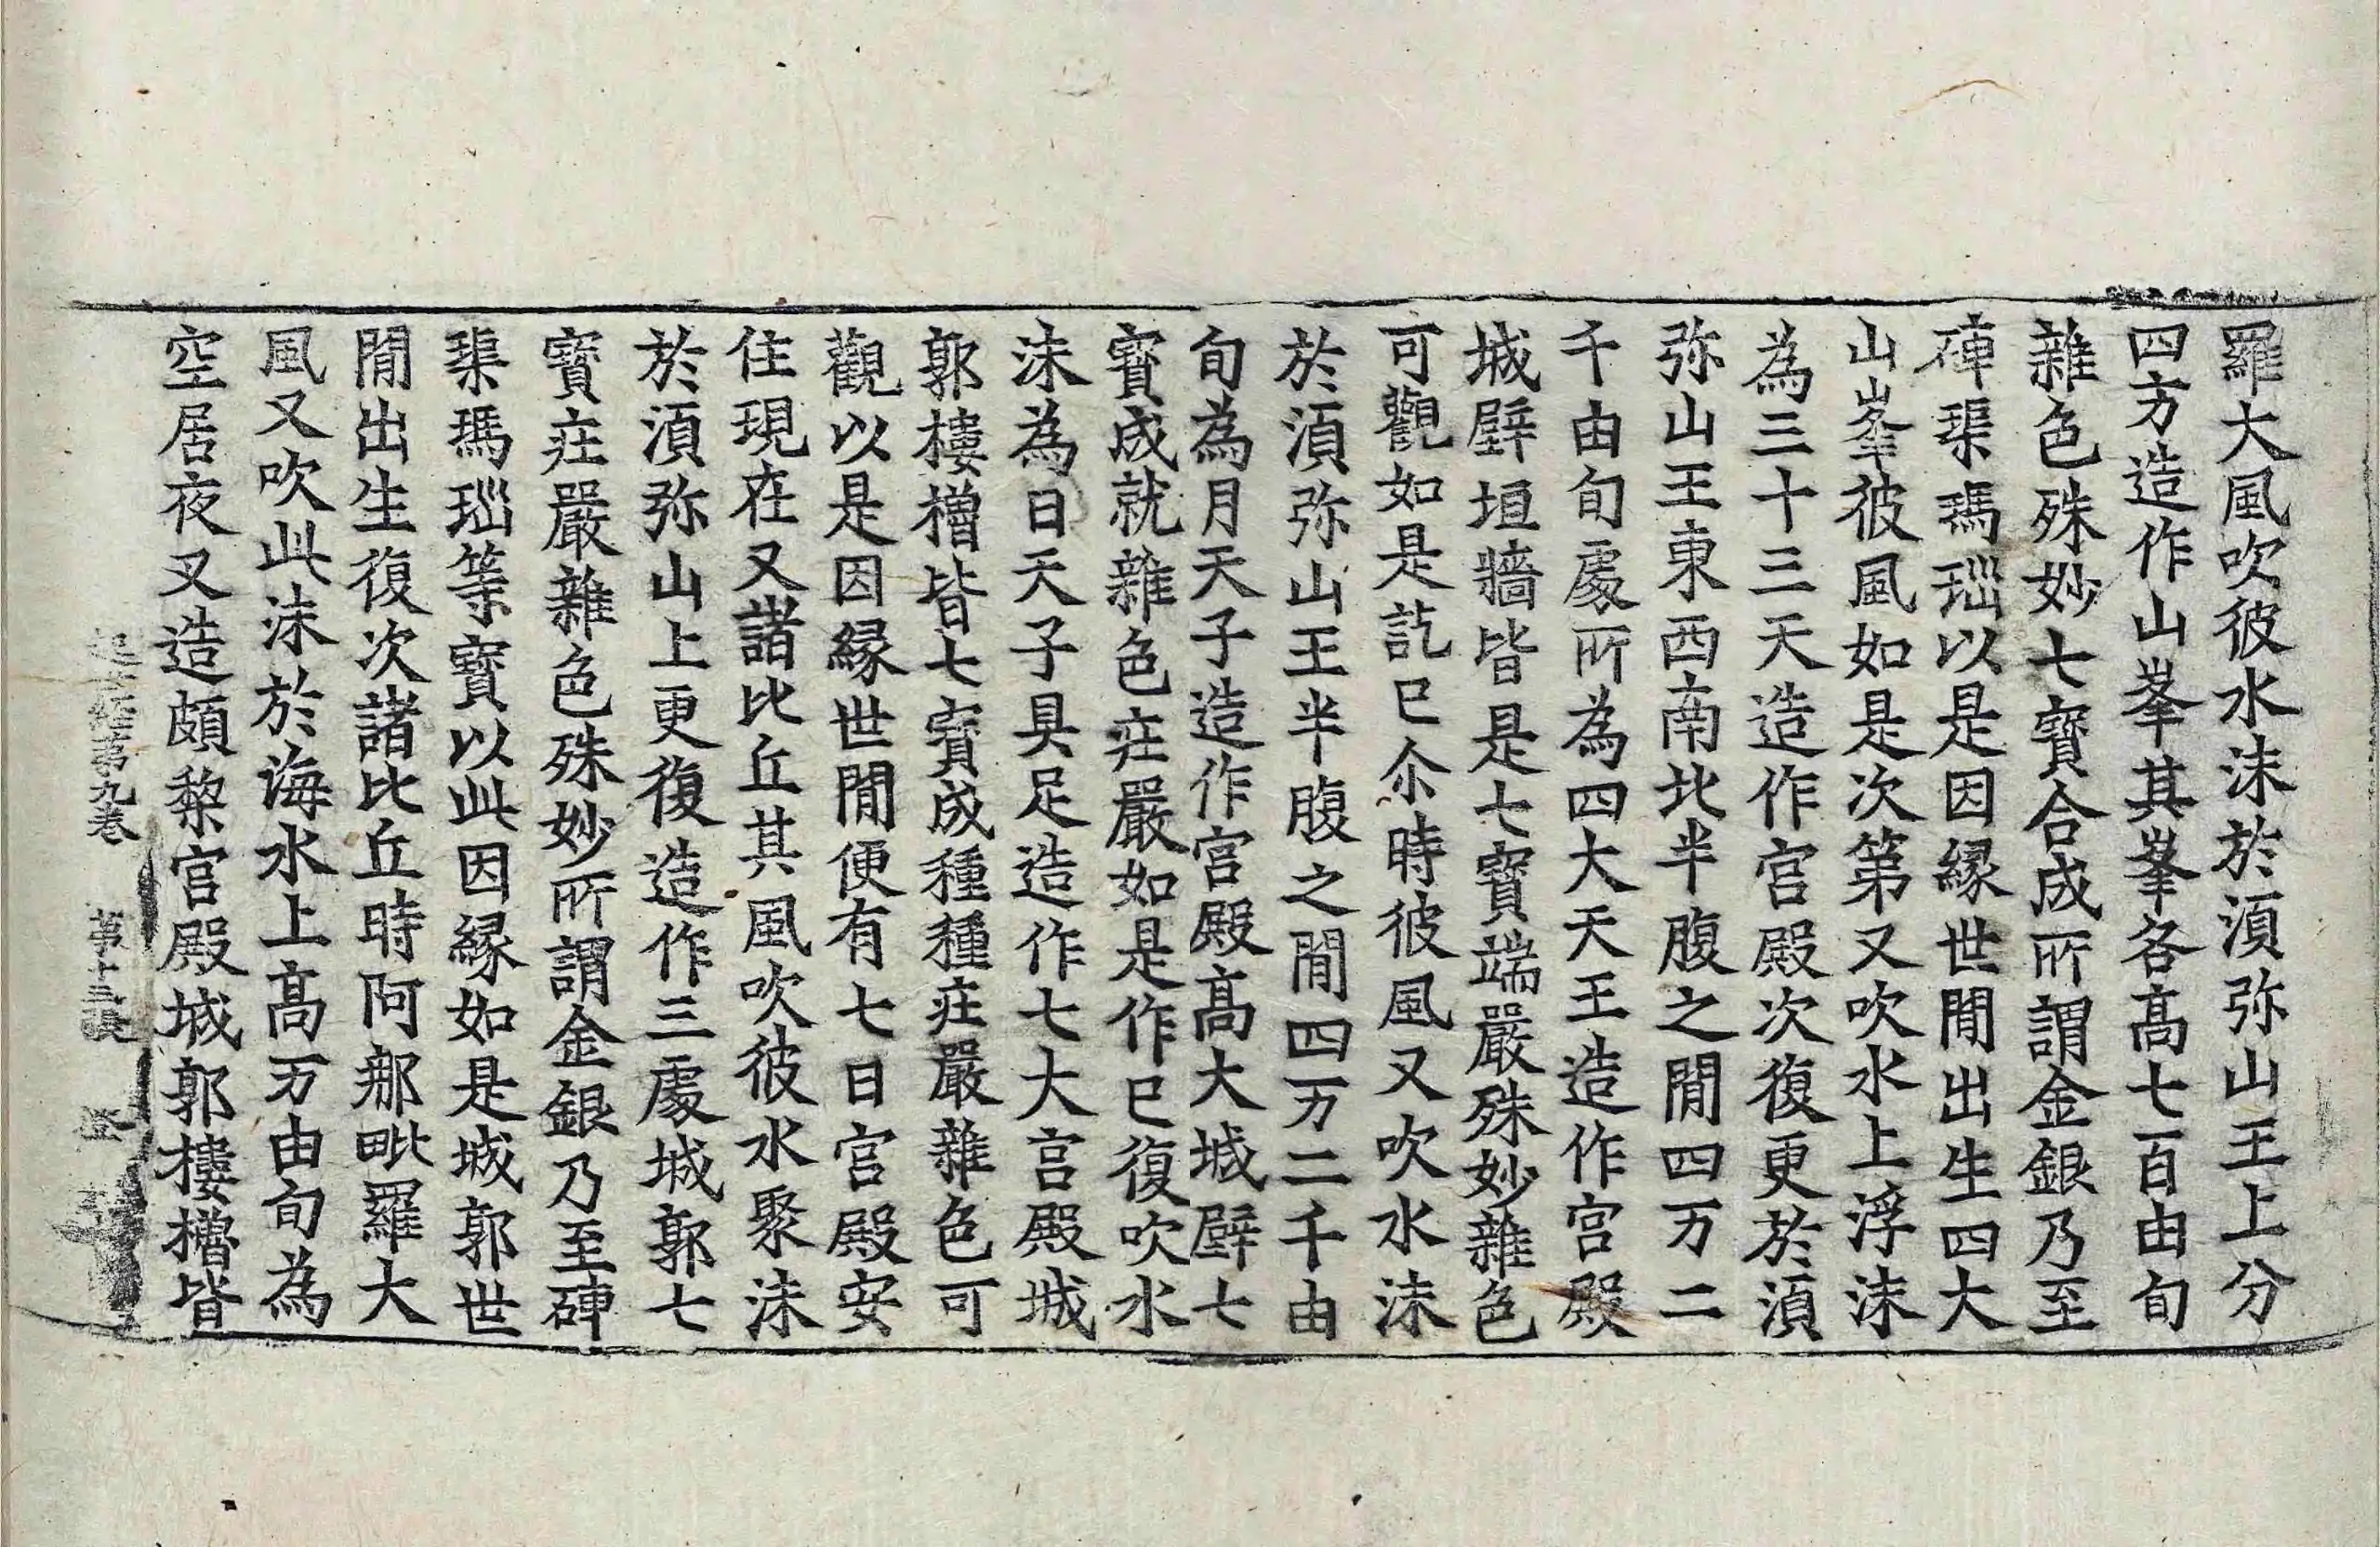 羅大風吹彼水沫於湏弥山王上分
四方造作山峯其峯各髙七百由旬
雜色殊妙七寶合成所謂金銀乃至
硨璖瑪瑙以是因縁世閒出生四大
山峯彼風如是次第又吹水上浮沫
為三十三天造作宮殿次復更於湏
弥山王東西南北半腹之閒四万二
千由旬處所為四大天王造作宮殿
城壁垣牆皆是七寶端嚴殊妙雜色
可觀如是訖已尒時彼風又吹水沫
於湏弥山王半腹之閒四万二千由
旬為月天子造作宮殿髙大城壁七
寶成就雜色莊嚴如是作已復吹水
沫為日天子具足造作七大宮殿城
郭樓櫓皆七寶成種種莊嚴雜色可
觀以是因縁世閒便有七日宮殿安
住現在又諸比丘其風吹彼水聚沫
於湏弥山上更復造作三處城郭七
寶莊嚴雜色殊妙所謂金銀乃至硨
璖瑪瑙等寶以此因縁如是城郭世
閒出生復次諸比丘時阿那毗羅大
風又吹此沫於海水上髙万由旬為
空居夜叉造頗黎宮殿城郭樓櫓皆
起世經第九卷 第十三張